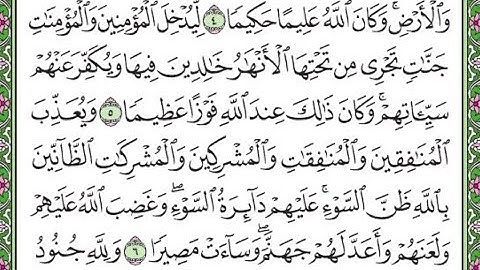 وَالْأَرْضِ ۚ وَكَانَ اللَّهُ عَلِيمًا حَكِيمًا ٤ لِّيُدْخِلَ الْمُؤْمِنِينَ وَالْمُؤْمِنَاتِ
جَنَّاتٍ تَجْرِي مِن تَحْتِهَا الْأَنْهَارُ خَالِدِينَ فِيهَا وَيُكَفِّرَ عَنْهُمْ
سَيِّئَاتِهِمْ ۚ وَكَانَ ذَٰلِكَ عِندَ اللَّهِ فَوْزًا عَظِيمًا ٥ وَيُعَذِّبَ
الْمُنَافِقِينَ وَالْمُنَافِقَاتِ وَالْمُشْرِكِينَ وَالْمُشْرِكَاتِ الظَّانِّينَ
بِاللَّهِ ظَنَّ السَّوْءِ ۚ عَلَيْهِمْ دَائِرَةُ السَّوْءِ ۖ وَغَضِبَ اللَّهُ عَلَيْهِمْ
وَلَعَنَهُمْ وَأَعَدَّ لَهُمْ جَهَنَّمَ ۖ وَسَاءَتْ مَصِيرًا ٦ وَلِلَّهِ جُنُودُ